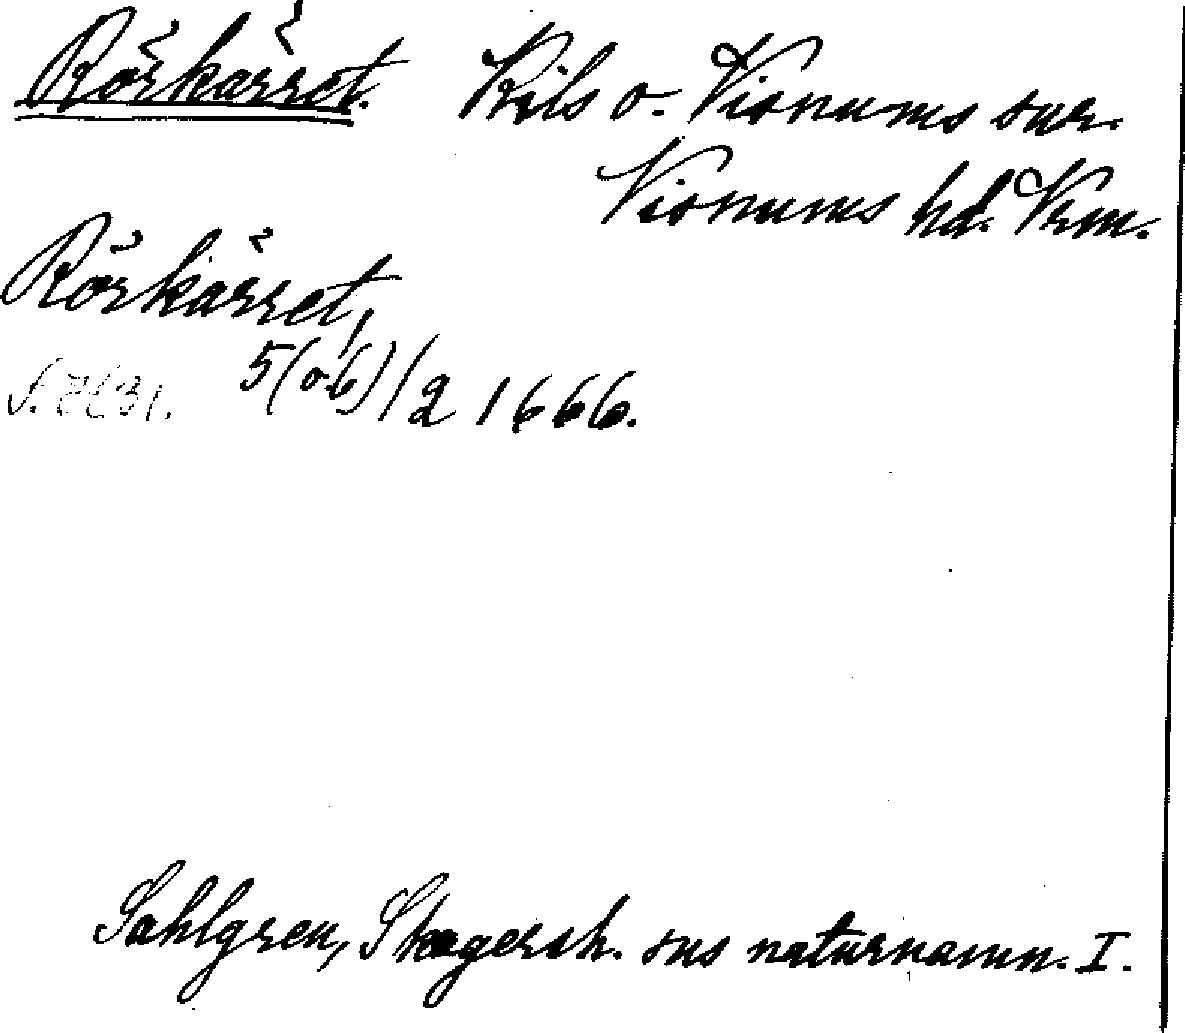 Rörkärret. Kils o. Visnums snr.
Visnums hd. Vrm.
Rörkärret,
5(o.6)/2 1666.
Sahlgren, Skagersh. sns naturnamn. I.